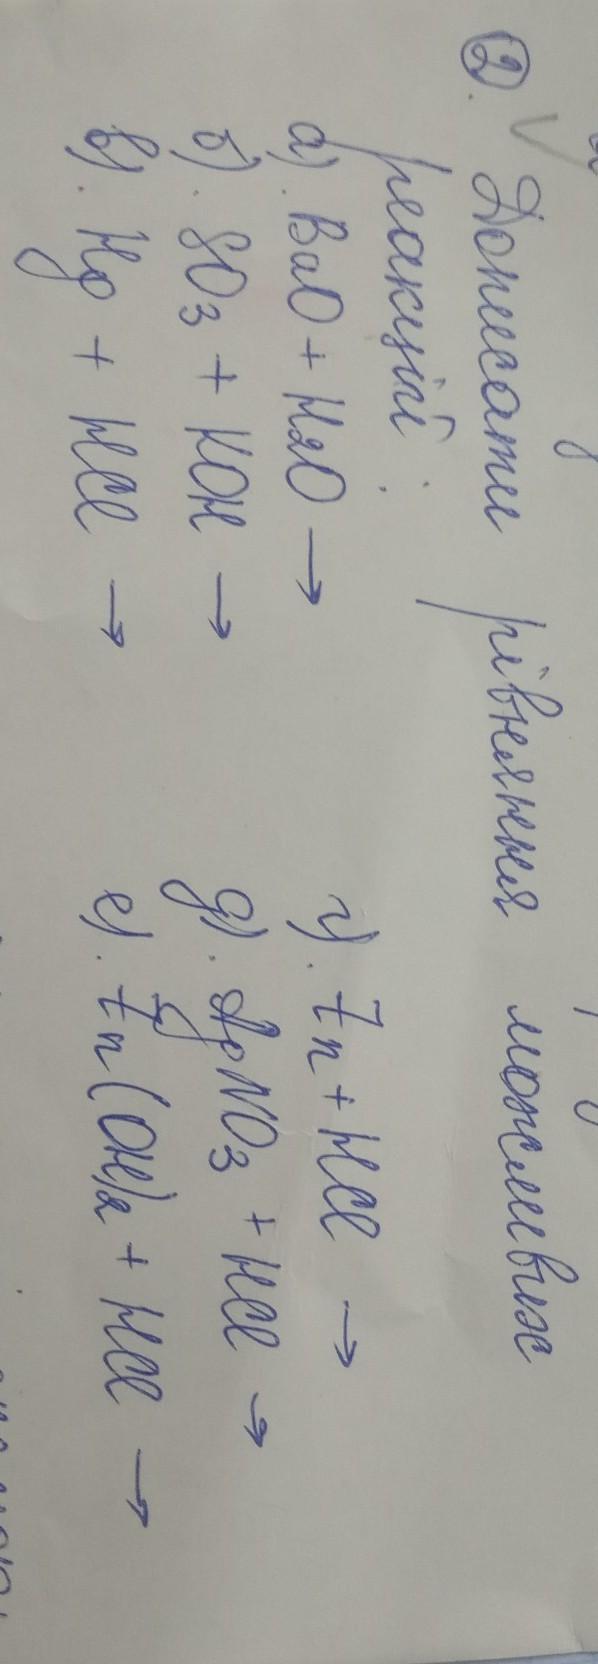 2. Дописати рівняння можливих
реакцій:
а). BaO + H2O →
б). SO3 + KOH →
в). Hg + HCl →
г). Zn + HCl →
д). AgNO3 + HCl →
е). Zn(OH)2 + HCl →